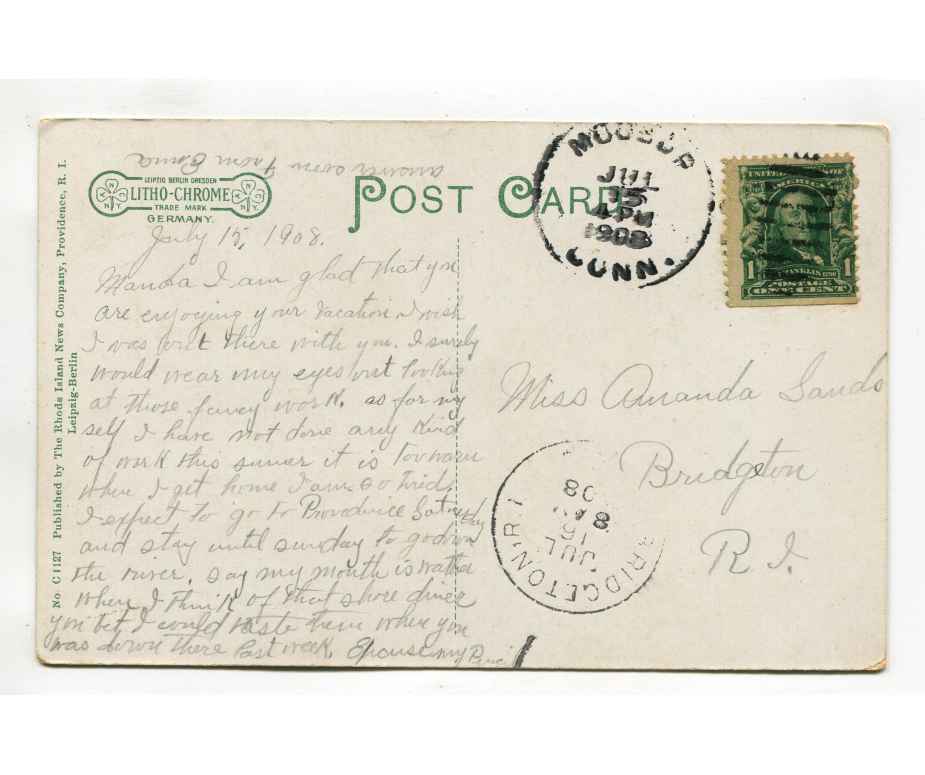 answer soon from Erma
LEIPZIG BERLIN DRESDEN
LITHO-CHROME
TRADE MARK
GERMANY.
POST CARD
MOOSUP
JUL
15
4 PM
1908
CONN.
UNITED STATES OF AMERICA
FRANKLIN
1 1
POSTAGE
ONE CENT
No. C 1127 Published by The Rhode Island News Company, Providence, R. I.
Leipzig-Berlin
July 15, 1908.
Manda I am glad that you
are enjoying your vacation I wish
I was out there with you. I surely
would wear my eyes out looking
at those fancy work. as for my
self I have not done any kind
of work this sumer it is Too warm
when I get home I am so tired.
I expect to go to Providince Saturday
and stay until sunday to go down
the river. say my mouth is watter
when I think of that shore diner
you bet I could taste them when you
was down there last week. Excuse my Pencil
Miss Amanda Sands
Bridgeton
R. I.
BRIDGETON R I
JUL
15
8 AM
08